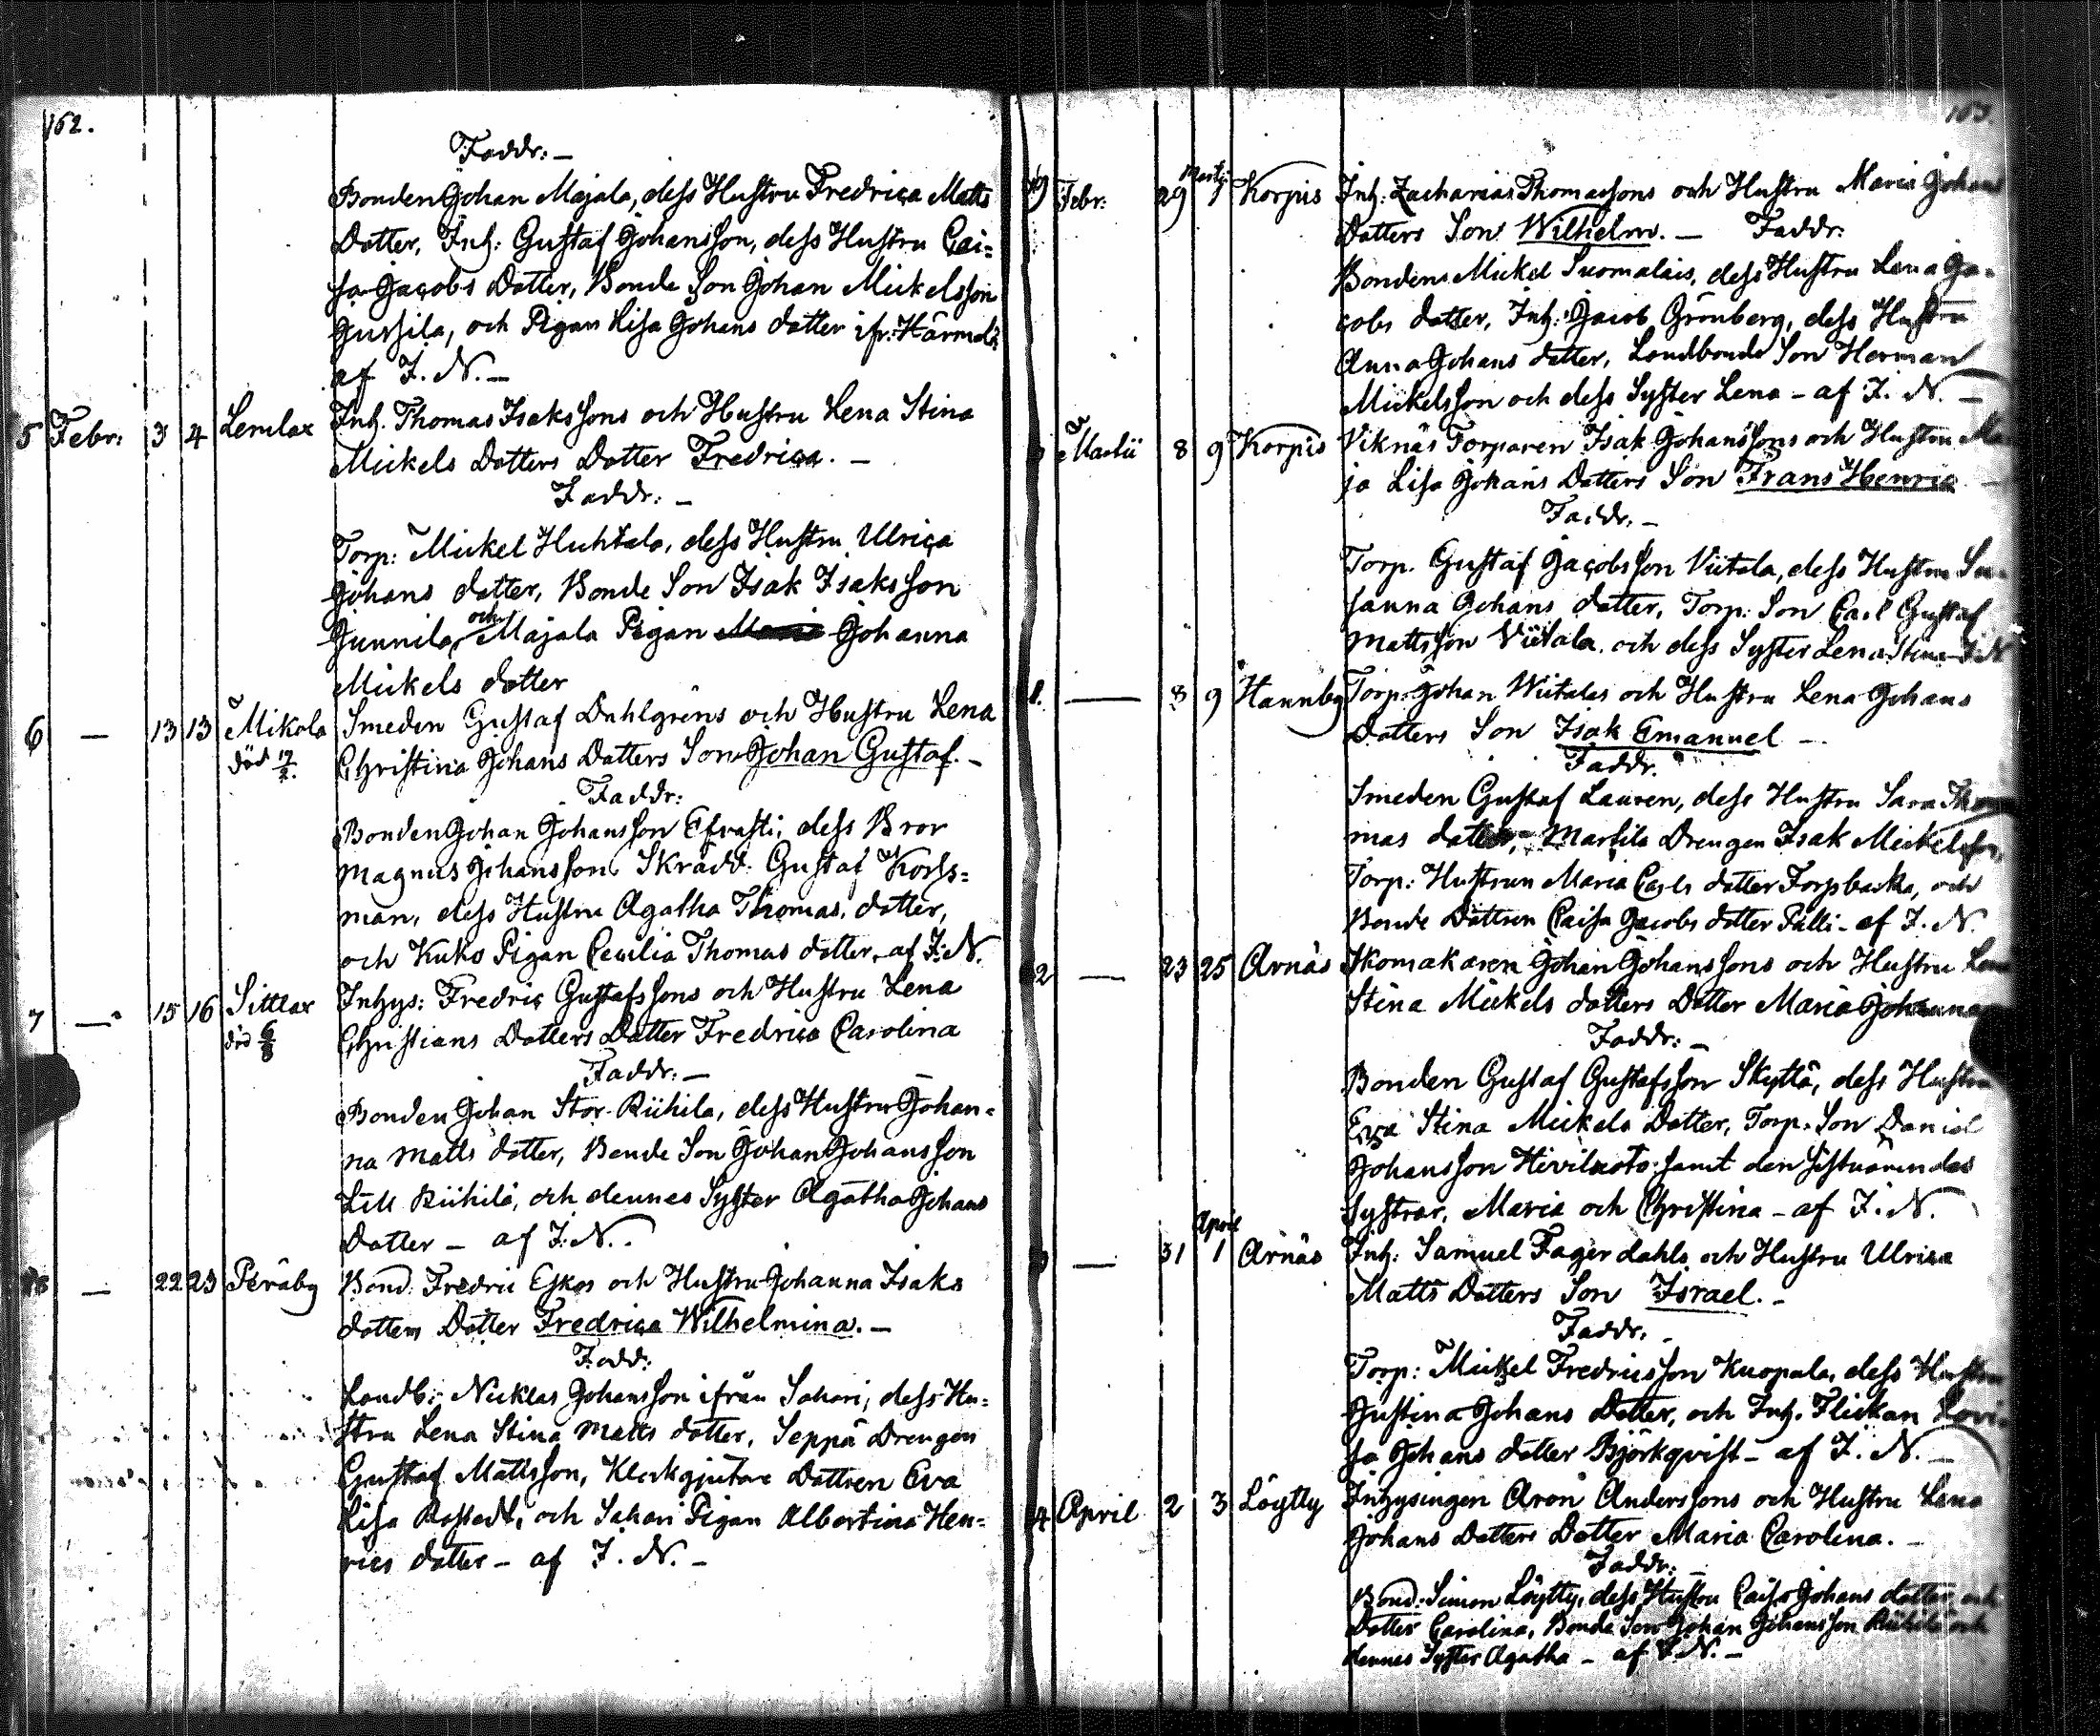 162.
Faddr: —
Bonden Johan Majala, dess Hustru Fredrica Matts
Dotter, Inh: Gustaf Johansson, dess Hustru Cai=
sa Jacobs Dotter, Bonde Son Johan Mickelsson
Jussila, och Pigan Lisa Johans dotter ifr:
af I. N. —
5 Febr: 3 4 Lemlax Inh. Thomas Isakssons och Hustru Lena Stina
Mickels Dotters Dotter Fredrica. —
Faddr: —
Torp: Mickel Huhtala, dess Hustru Ulrica
Johans dotter, Bonde Son Isak Isaksson
Junnila, och Majala Pigan Johanna
Mickels dotter
6 — 13 13 Mikola Smeden Gustaf Dahlgrens och Hustru Lena
död 17/2. Christina Johans Dotters Son Johan Gustaf. —
Faddr:
Bonden Johan Johansson Efvasti, dess Bror
Magnus Johansson, Skrädd: Gustaf Korss=
man, dess Hustru Agatha Thomas, dotter,
och Kuko Pigan Cecilia Thomas dotter, af I. N.
7 — 15 16 Sittlax Inhys: Fredric Gustafssons och Hustru Lena
död 6/8 Christians Dotters Dotter Fredrica Carolina
Faddr: —
Bonden Johan Stor-Riihila, dess Hustru Johan=
na Matts dotter, Bonde Son Johan Johansson
Lill Riihilä, och dennes Syster Agatha Johans
Dotter — af I. N.
8 — 22 23 Peräby Bond: Fredric Eskos och Hustru Johanna Isaks
dotters Dotter Fredrica Wilhelmina. —
Fadd:
Landb: Nicklas Johansson ifrån Sahari, dess Hu=
stru Lena Stina Matts dotter, Seppä Drengen
Gustaf Mattsson, Klockgjutare Dottren Eva
Lisa Rostedt, och Sahari Pigan Albertina Hen=
rics dotter — af I. N. —
163.
9 Febr: 29 Martii 1 Korpis Inh: Zacharias Thomassons och Hustru Maria Johans
Dotters Son Wilhelm. — Faddr:
Bonden Mickel Suomalais, dess Hustru Lena Ja=
cobs dotter, Inh: Jacob Grönberg, dess Hustru
Anna Johans dotter, Landbonde Son Herman
Mickelsson och dess Syster Lena — af I. N. —
Martii 8 9 Korpis Viknäs Torparen Isak Johanssons och Hustru Ma
ja Lisa Johans Dotters Son Frans Henric —
Faddr. —
Torp. Gustaf Jacobsson Viitala, dess Hustru Su=
sanna Johans dotter, Torp: Son Carl Gustaf
Mattsson Viitala och dess Syster Lena Stina I N
1. — 8 9 Hannby Torp: Johan Wiitalas och Hustru Lena Johans
Dotters Son Isak Emanuel —
Faddr.
Smeden Gustaf Lauren, dess Hustru Sara Tho
mas dotter, Marsila Drengen Isak Mickelss:
Torp: Hustrun Maria Carls dotter Torpbacka, och
Bonde Dottren Caisa Jacobs dotter Pälli — af I. N.
2 — 23 25 Arnäs Skomakaren Johan Johanssons och Hustru Lena
Stina Mickels dotters Dotter Maria Johanna
Faddr: —
Bonden Gustaf Gustafsson Skyttä, dess Hustru
Eva Stina Mickels Dotter, Torp. Son Daniel
Johansson samt den sistnämndas
Systrar, Maria och Christina — af I. N.
— 31 April 1 Arnäs Inh: Samuel Fagerdahls och Hustru Ulrica
Matts Dotters Son Israel. —
Faddr.
Torp: Mickel Fredricsson Kuopala, dess Hustru
Justina Johans Dotter, och Inh. Flickan Lovi=
sa Johans dotter Björkqvist — af I. N. —
4 April 2 3 Löytty Inhysingen Aron Anderssons och Hustru Lena
Johans Dotters Dotter Maria Carolina. —
Faddr:
Bond: Simon Löytty, dess Hustru Caisa Johans dotter, och
Dotter Carolina, Bonde Son Johan Johansson Riihilä och
dennes Syster Agatha — af I. N. —